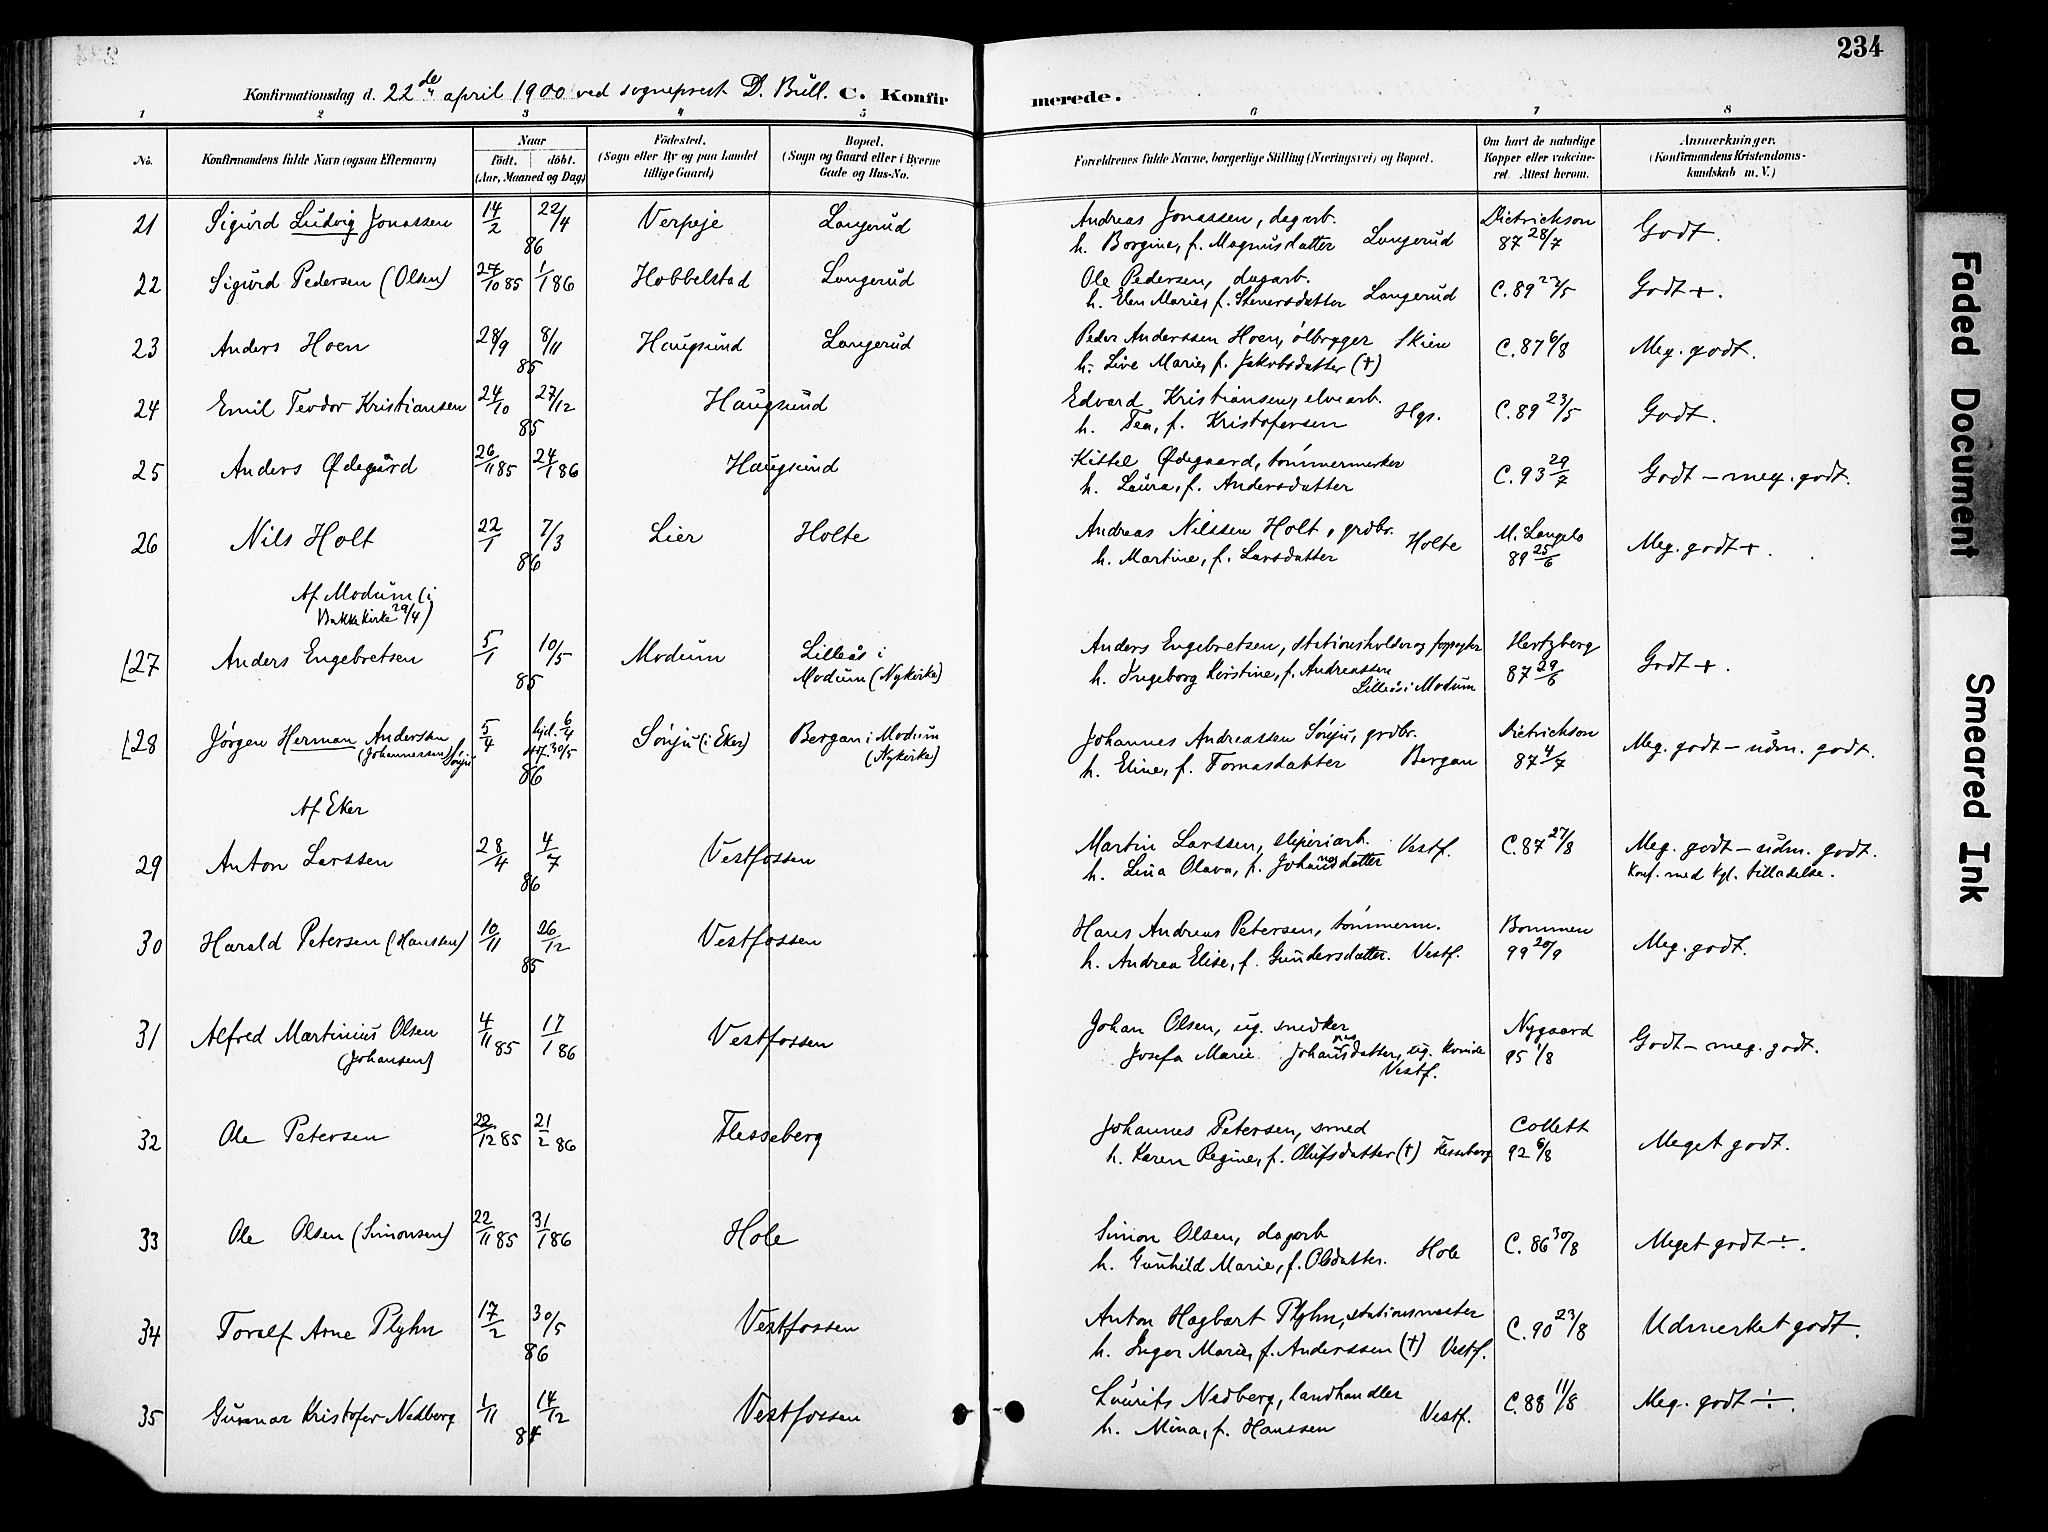 234
Konfirmationsdag d. 22de april 1900 ved sogneprest D. Bull. C. Konfirmerede.
1 2 3 4 5 6 7 8
No. Konfirmandens fulde Navn (ogsaa Efternavn) Naar födt. döbt. (Aar, Maaned og Dag) Födested. (Sogn eller By og paa Landet tillige Gaard) Bopæl. (Sogn og Gaard eller i Byerne Gade og Hus-No. Forældrenes fulde Navne, borgerlige Stilling (Næringsvei) og Bopæl. Om havt de naturlige Kopper eller vaccineret. Attest herom. Anmærkninger. (Konfirmandens Kristendomskundskab m. V.)
21 Sigurd Ludvig Jonassen 14/2 22/4 86 Verpeje Langerud Andreas Jonassen, dagarb. h. Borgine, f. Magnusdatter Langerud Dietrichson 87 28/7 Godt.
22 Sigurd Pedersen (Olsen) 27/10 85 1/1 86 Hobbelstad Langerud Ole Pedersen, dagarb. h. Elen Marie, f. Stenersdatter Langerud C. 89 23/5 Godt +.
23 Anders Hoen 28/9 8/11 85 Haugsund Langerud Peder Anderssen Hoen, ölbrygger Skien h. Live Marie, f. Jakobsdatter (†) C. 87 6/8 Meg. godt.
24 Emil Teodor Kristiansen 24/10 27/12 85 Haugsund Edvard Kristiansen, elvearb. h. Tea, f. Kristofersen Hgs. C. 89 23/5 Godt.
25 Anders Ødegård 26/11 85 24/1 86 Haugsund Kittel Ødegaard, tömmermerker h. Laura, f. Andersdatter C. 93 29/7 Godt – meg. godt.
26 Nils Holt 22/1 7/3 86 Lier Holte Andreas Nilssen Holt, grdbr. h. Martine, f. Larsdatter Holte M. Langels 89 25/6 Meg. godt +.
Af Modum (i Bakke Kirke 29/4)
27 Anders Engebretsen 5/1 10/5 85 Modum Lilleås i Modum (Nykirke) Anders Engebretsen, stationsholder og h. Ingeborg Kerstine, f. Andreassen Lilleås i Modum Hertzberg 87 29/6 Godt +.
28 Jörgen Herman Anderssen (Johannessen) Sönju 5/4 hjd. 6/4 stf. 30/5 86 Sönju (i Eker) Bergan i Modum (Nykirke) Johannes Andreassen Sönju, grdbr. h. Eline, f. Tomasdatter Bergan Dietrichson 87 4/7 Meg. godt – udm. godt.
Af Eker
29 Anton Larssen 28/4 4/7 86 Vestfossen Martin Larssen, sliperiarb. h. Lina Olava, f. Johannesdatter Vestf. C. 87 27/8 Meg. godt – udm. godt. Konf. med kgl. tilladelse.
30 Harald Petersen (Hanssen) 10/11 26/12 85 Vestfossen Hans Andreas Petersen, tömmerm. h. Andrea Elise, f. Gundersdatter. Vestf. Bommen 99 20/9 Meg. godt.
31 Alfred Martinius Olsen (Johansen) 4/11 85 17/1 86 Vestfossen Johan Olsen, ug. snedker Josefa Marie Johannesdatter, ug. kvinde Vestf. Nygaard 95 1/8 Godt – meg. godt.
32 Ole Petersen 22/12 85 21/2 86 Flesseberg Johannes Petersen, smed h. Karen Regine, f. Olufsdatter (†) Flesseberg Collett 92 6/8 Meget godt.
33 Ole Olsen (Simonsen) 22/11 85 31/1 86 Hole Simon Olsen, dagarb h. Gunhild Marie, f. Olsdatter. Hole C. 86 30/8 Meget godt ÷.
34 Toralf Arne Plyhn 17/2 30/5 86 Vestfossen Anton Hagbart Plyhn, stationsmester h. Inger Marie, f. Anderssen (†) Vestf. C. 90 23/8 Udmerket godt.
35 Gunnar Kristofer Nedberg 1/11 14/12 84 Vestfossen Laurits Nedberg, landhandler h. Mina, f. Hanssen Vestf. C. 88 11/8 Meg. godt ÷.
Faded Document
Smeared Ink